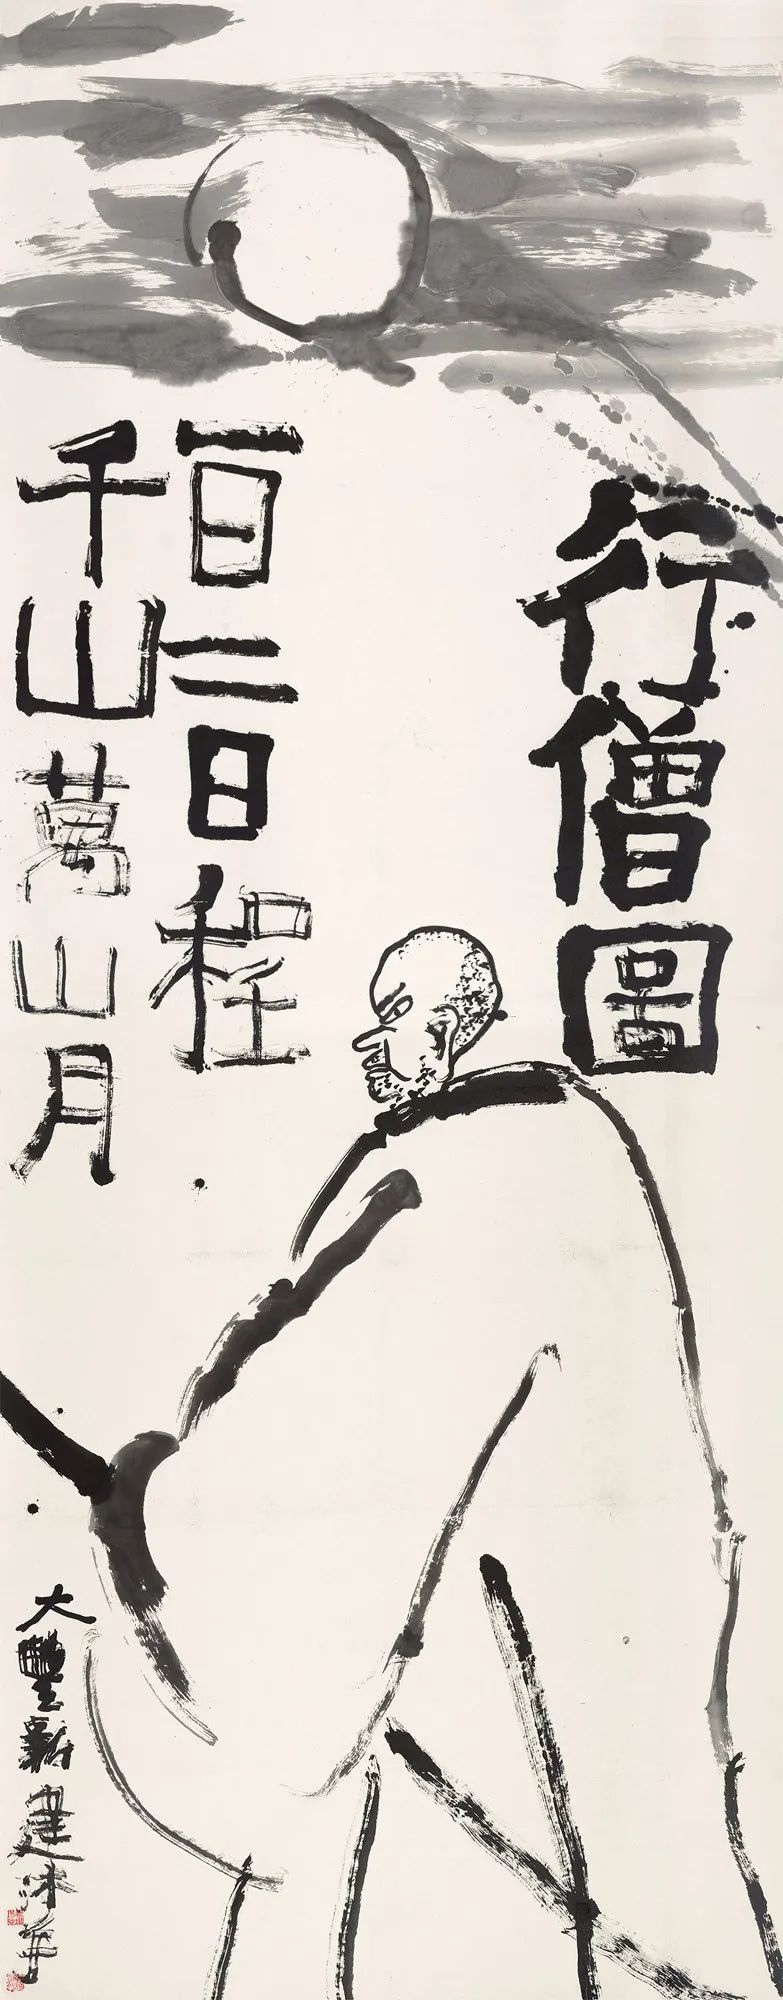 行僧圖
一日二日程
千山萬山月
大豐新建